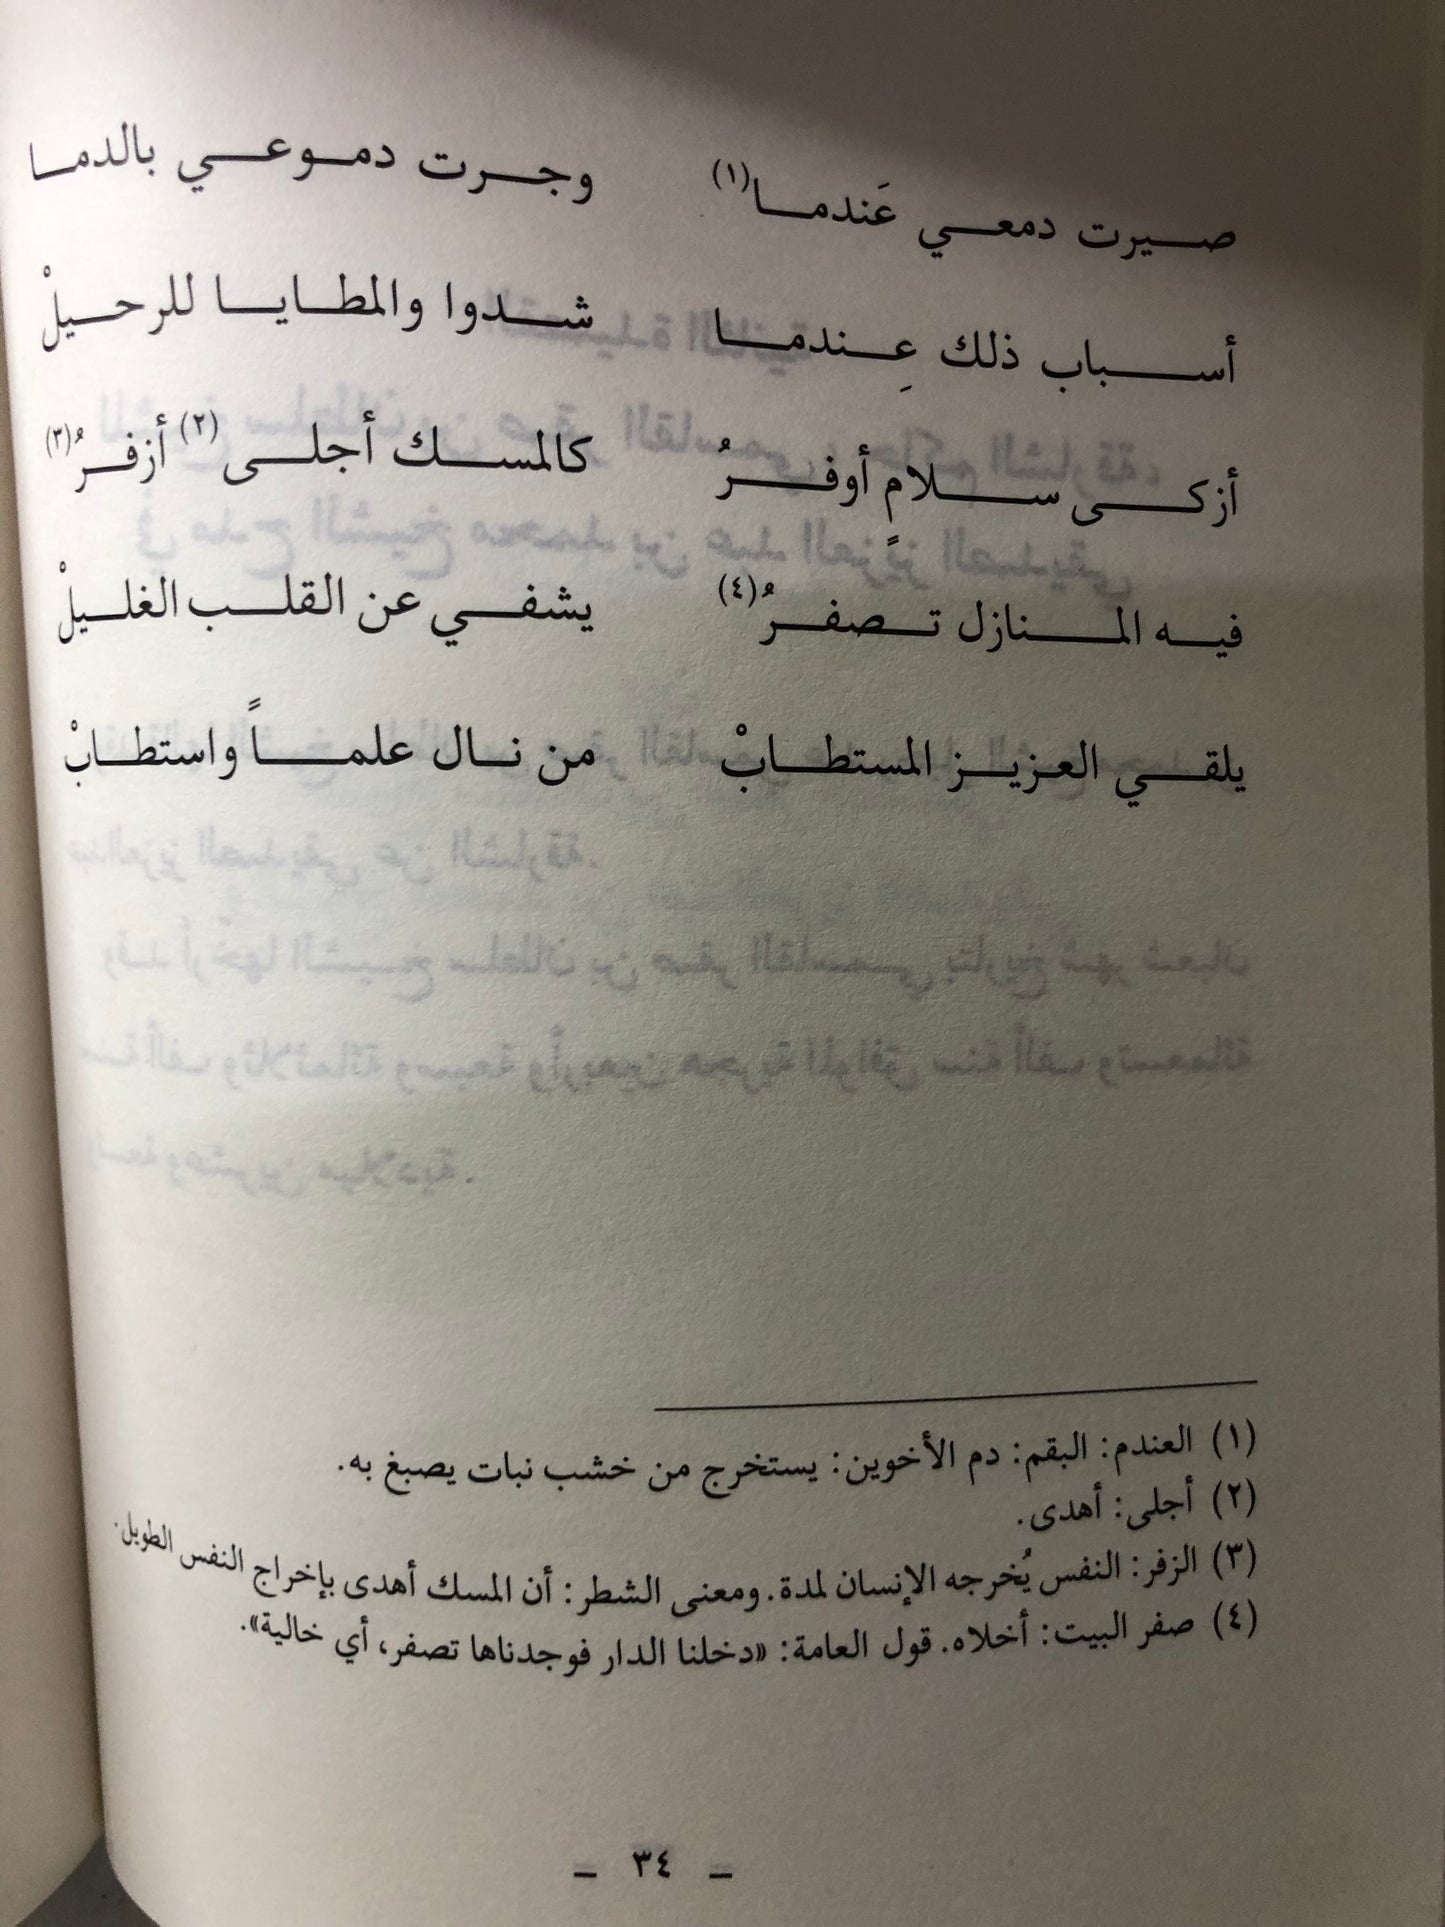 صيرت دمعي عَندما(١) وجرت دموعي بالدما
أسباب ذلك عِندما شدوا والمطايا للرحيلْ
أزكى سلامٍ أوفرُ كالمسك أجلى(٢) أزفرُ(٣)
فيه المنازل تصفرُ(٤) يشفي عن القلب الغليلْ
يلقي العزيز المستطابْ من نال علماً واستطابْ
(١) العندم: البقم: دم الأخوين: يستخرج من خشب نبات يصبغ به.
(٢) أجلى: أهدى.
(٣) الزفر: النفس يُخرجه الإنسان لمدة. ومعنى الشطر: أن المسك أهدى بإخراج النفس الطويل.
(٤) صفر البيت: أخلاه. قول العامة: «دخلنا الدار فوجدناها تصفر، أي خالية».
– ٣٤ –